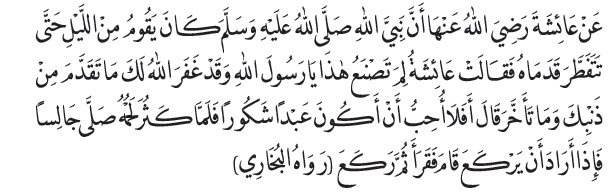 عَنْ عَائِشَةَ رَضِيَ اللهُ عَنْهَا أَنَّ نَبِيَّ اللهِ صَلَّى اللهُ عَلَيْهِ وَسَلَّمَ كَانَ يَقُومُ مِنَ اللَّيْلِ حَتَّى
تَتَفَطَّرَ قَدَمَاهُ فَقَالَتْ عَائِشَةُ لِمَ تَصْنَعُ هٰذَا يَا رَسُولَ اللهِ وَقَدْ غَفَرَ اللهُ لَكَ مَا تَقَدَّمَ مِنْ
ذَنْبِكَ وَمَا تَأَخَّرَ قَالَ أَفَلَا أُحِبُّ أَنْ أَكُونَ عَبْدًا شَكُورًا فَلَمَّا كَثُرَ لَحْمُهُ صَلَّى جَالِسًا
فَإِذَا أَرَادَ أَنْ يَرْكَعَ قَامَ فَقَرَأَ ثُمَّ رَكَعَ (رَوَاهُ الْبُخَارِي)